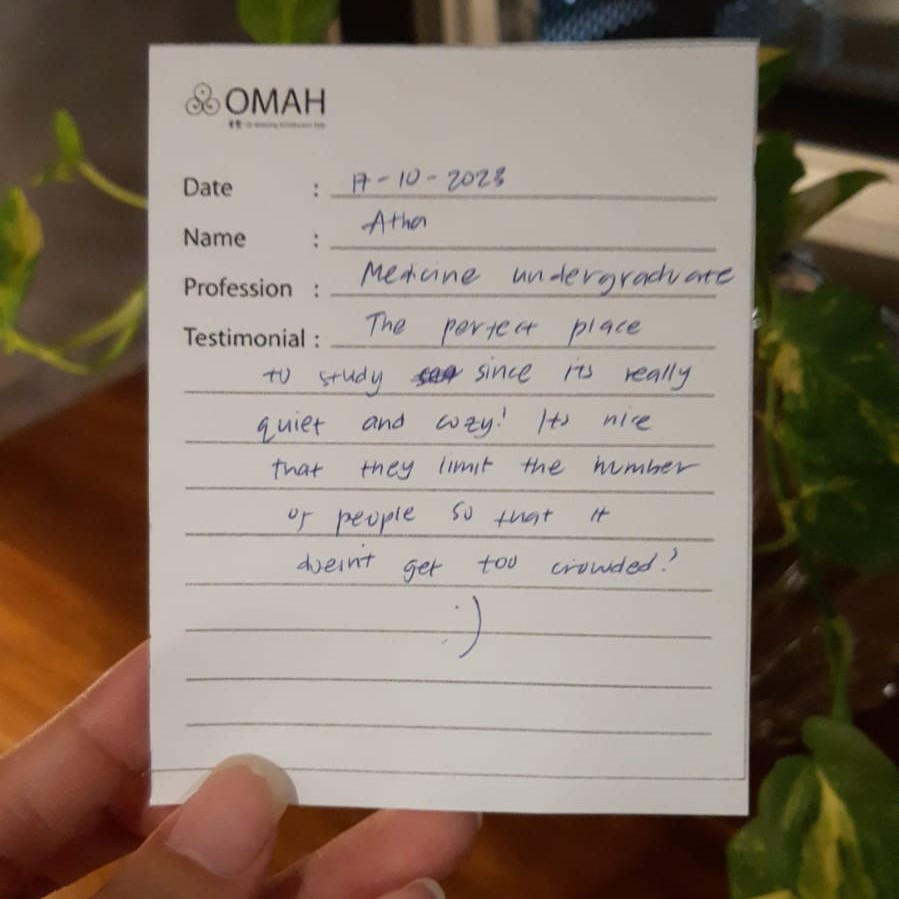 OMAH
Date : 17-10-2023
Name : Atha
Profession : Medicine undergraduate
Testimonial : The perfect place
to study since its really
quiet and cozy! Its nice
that they limit the number
of people so that it
doesn't get too crowded!
:)